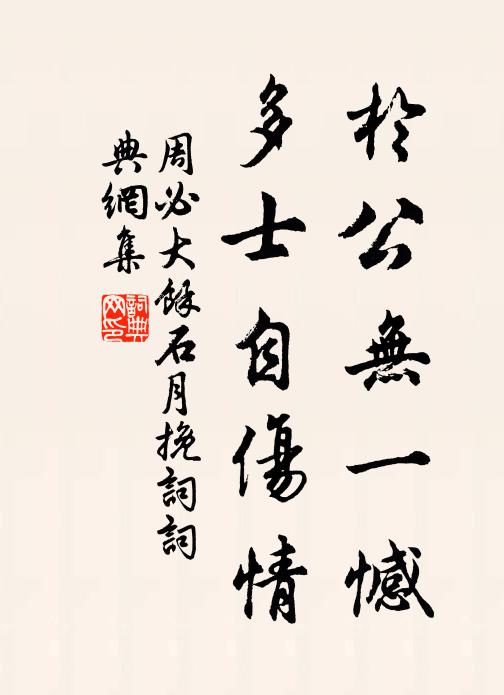 於公無一憾
多士自傷情
周必大餘石月挽詞詞
典網集
詞典
网印